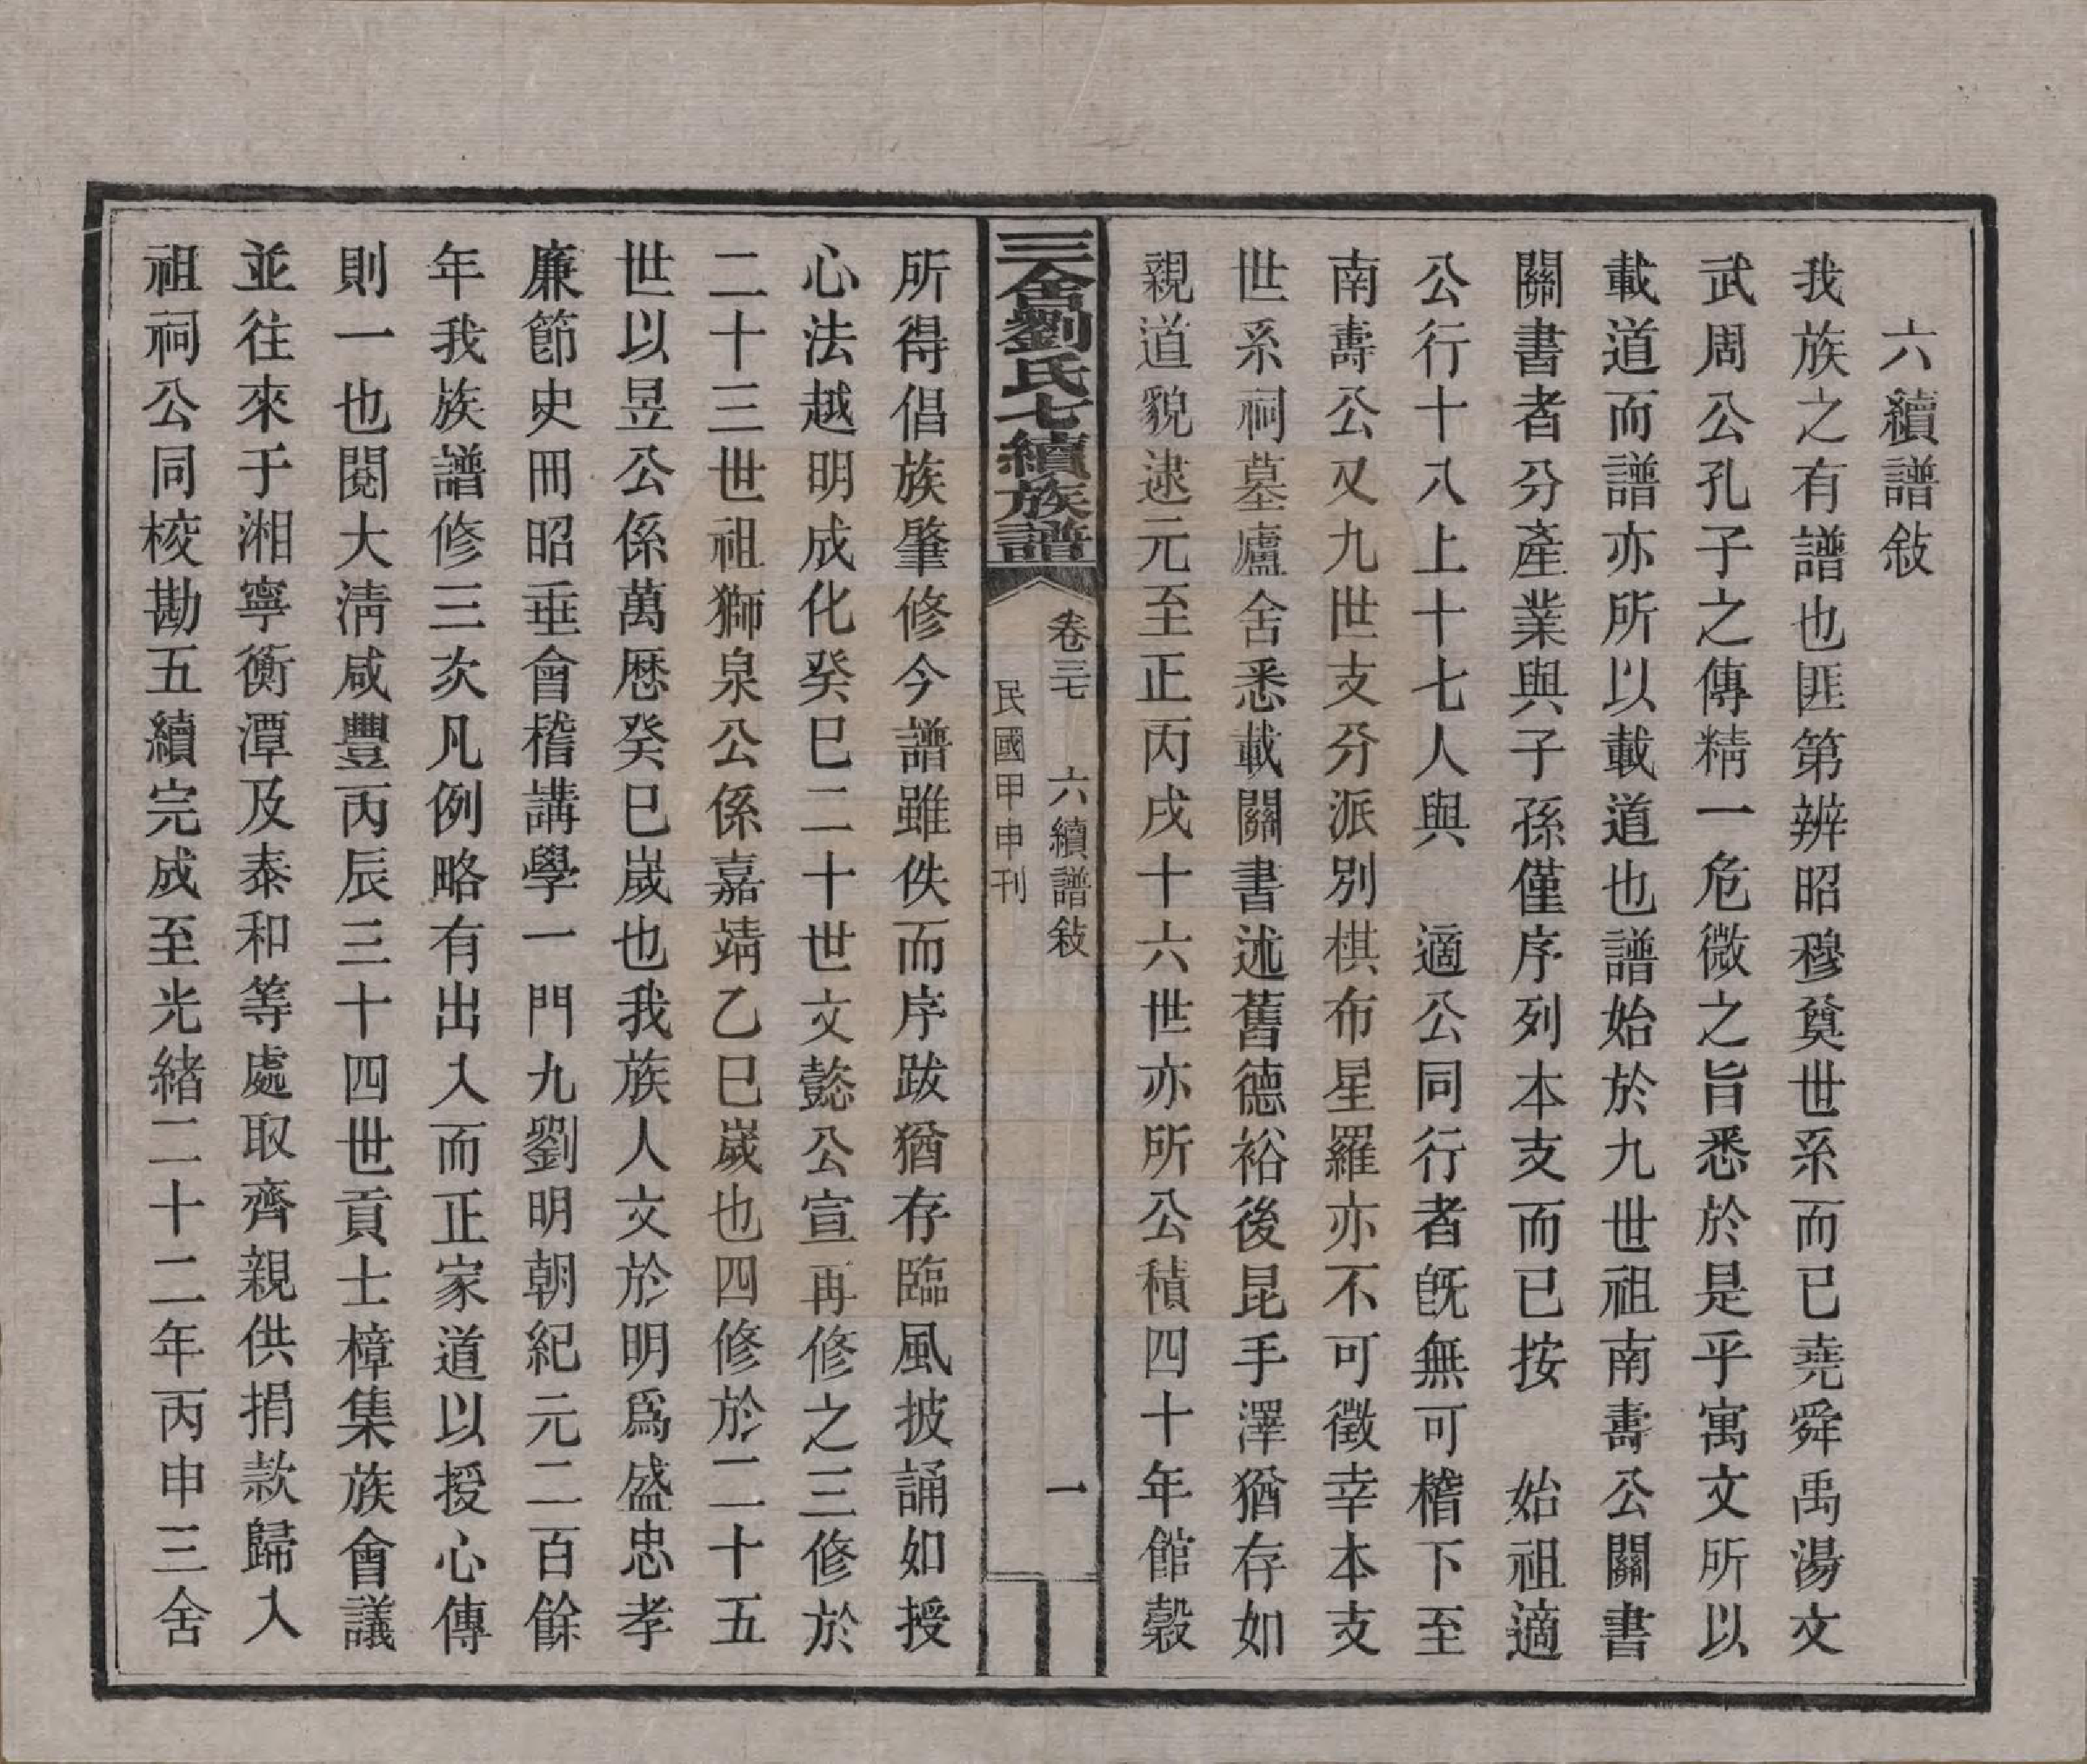 六續譜敍
我族之有譜也匪第辨昭穆奠世系而已堯舜禹湯文
武周公孔子之傳精一危微之旨悉於是乎寓文所以
載道而譜亦所以載道也譜始於九世祖南壽公關書
關書者分產業與子孫僅序列本支而已按　始祖適
公行十八上十七人與　適公同行者旣無可稽下至
南壽公又九世支分派別棋布星羅亦不可徵幸本支
世系祠墓廬舍悉載關書述舊德裕後昆手澤猶存如
親道貌逮元至正丙戌十六世亦所公積四十年館穀
三舍劉氏七續族譜
卷三七　六續譜敍　一
民國甲申刊
所得倡族肇修今譜雖佚而序跋猶存臨風披誦如授
心法越明成化癸巳二十世文懿公宣再修之三修於
二十三世祖獅泉公係嘉靖乙巳歲也四修於二十五
世以昱公係萬厯癸巳歲也我族人文於明爲盛忠孝
廉節史冊昭垂會稽講學一門九劉明朝紀元二百餘
年我族譜修三次凡例略有出入而正家道以授心傳
則一也閱大淸咸豐丙辰三十四世貢士樟集族會議
並往來于湘寧衡潭及泰和等處取齊親供捐款歸入
祖祠公同校勘五續完成至光緒二十二年丙申三舍